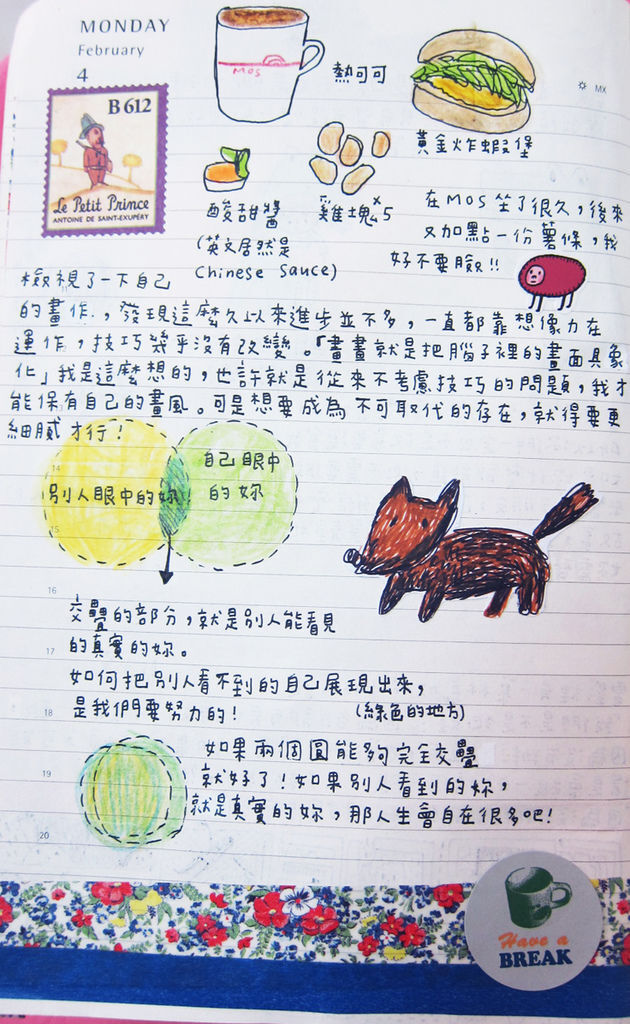 MONDAY
February
4
B 612
Le Petit Prince
ANTOINE DE SAINT-EXUPÉRY
MOS
熱可可
MX
黃金炸蝦堡
酸甜醬
(英文居然是
Chinese Sauce)
雞塊x5
在MOS坐了很久,後來
又加點一份薯條,我
好不要臉!!
檢視了一下自己
的畫作,發現這麼久以來進步並不多,一直都靠想像力在
運作,技巧幾乎沒有改變。「畫畫就是把腦子裡的畫面具象
化」我是這麼想的,也許就是從來不考慮技巧的問題,我才
能保有自己的畫風。可是想要成為不可取代的存在,就得要更
細膩才行!
14
自己眼中
的妳
別人眼中的妳
15
16
交疊的部分,就是別人能看見
17
的真實的妳。
如何把別人看不到的自己展現出來,
18
是我們要努力的!
(綠色的地方)
如果兩個圓能夠完全交疊
19
就好了!如果別人看到的妳,
就是真實的妳,那人生會自在很多吧!
20
Have a
BREAK